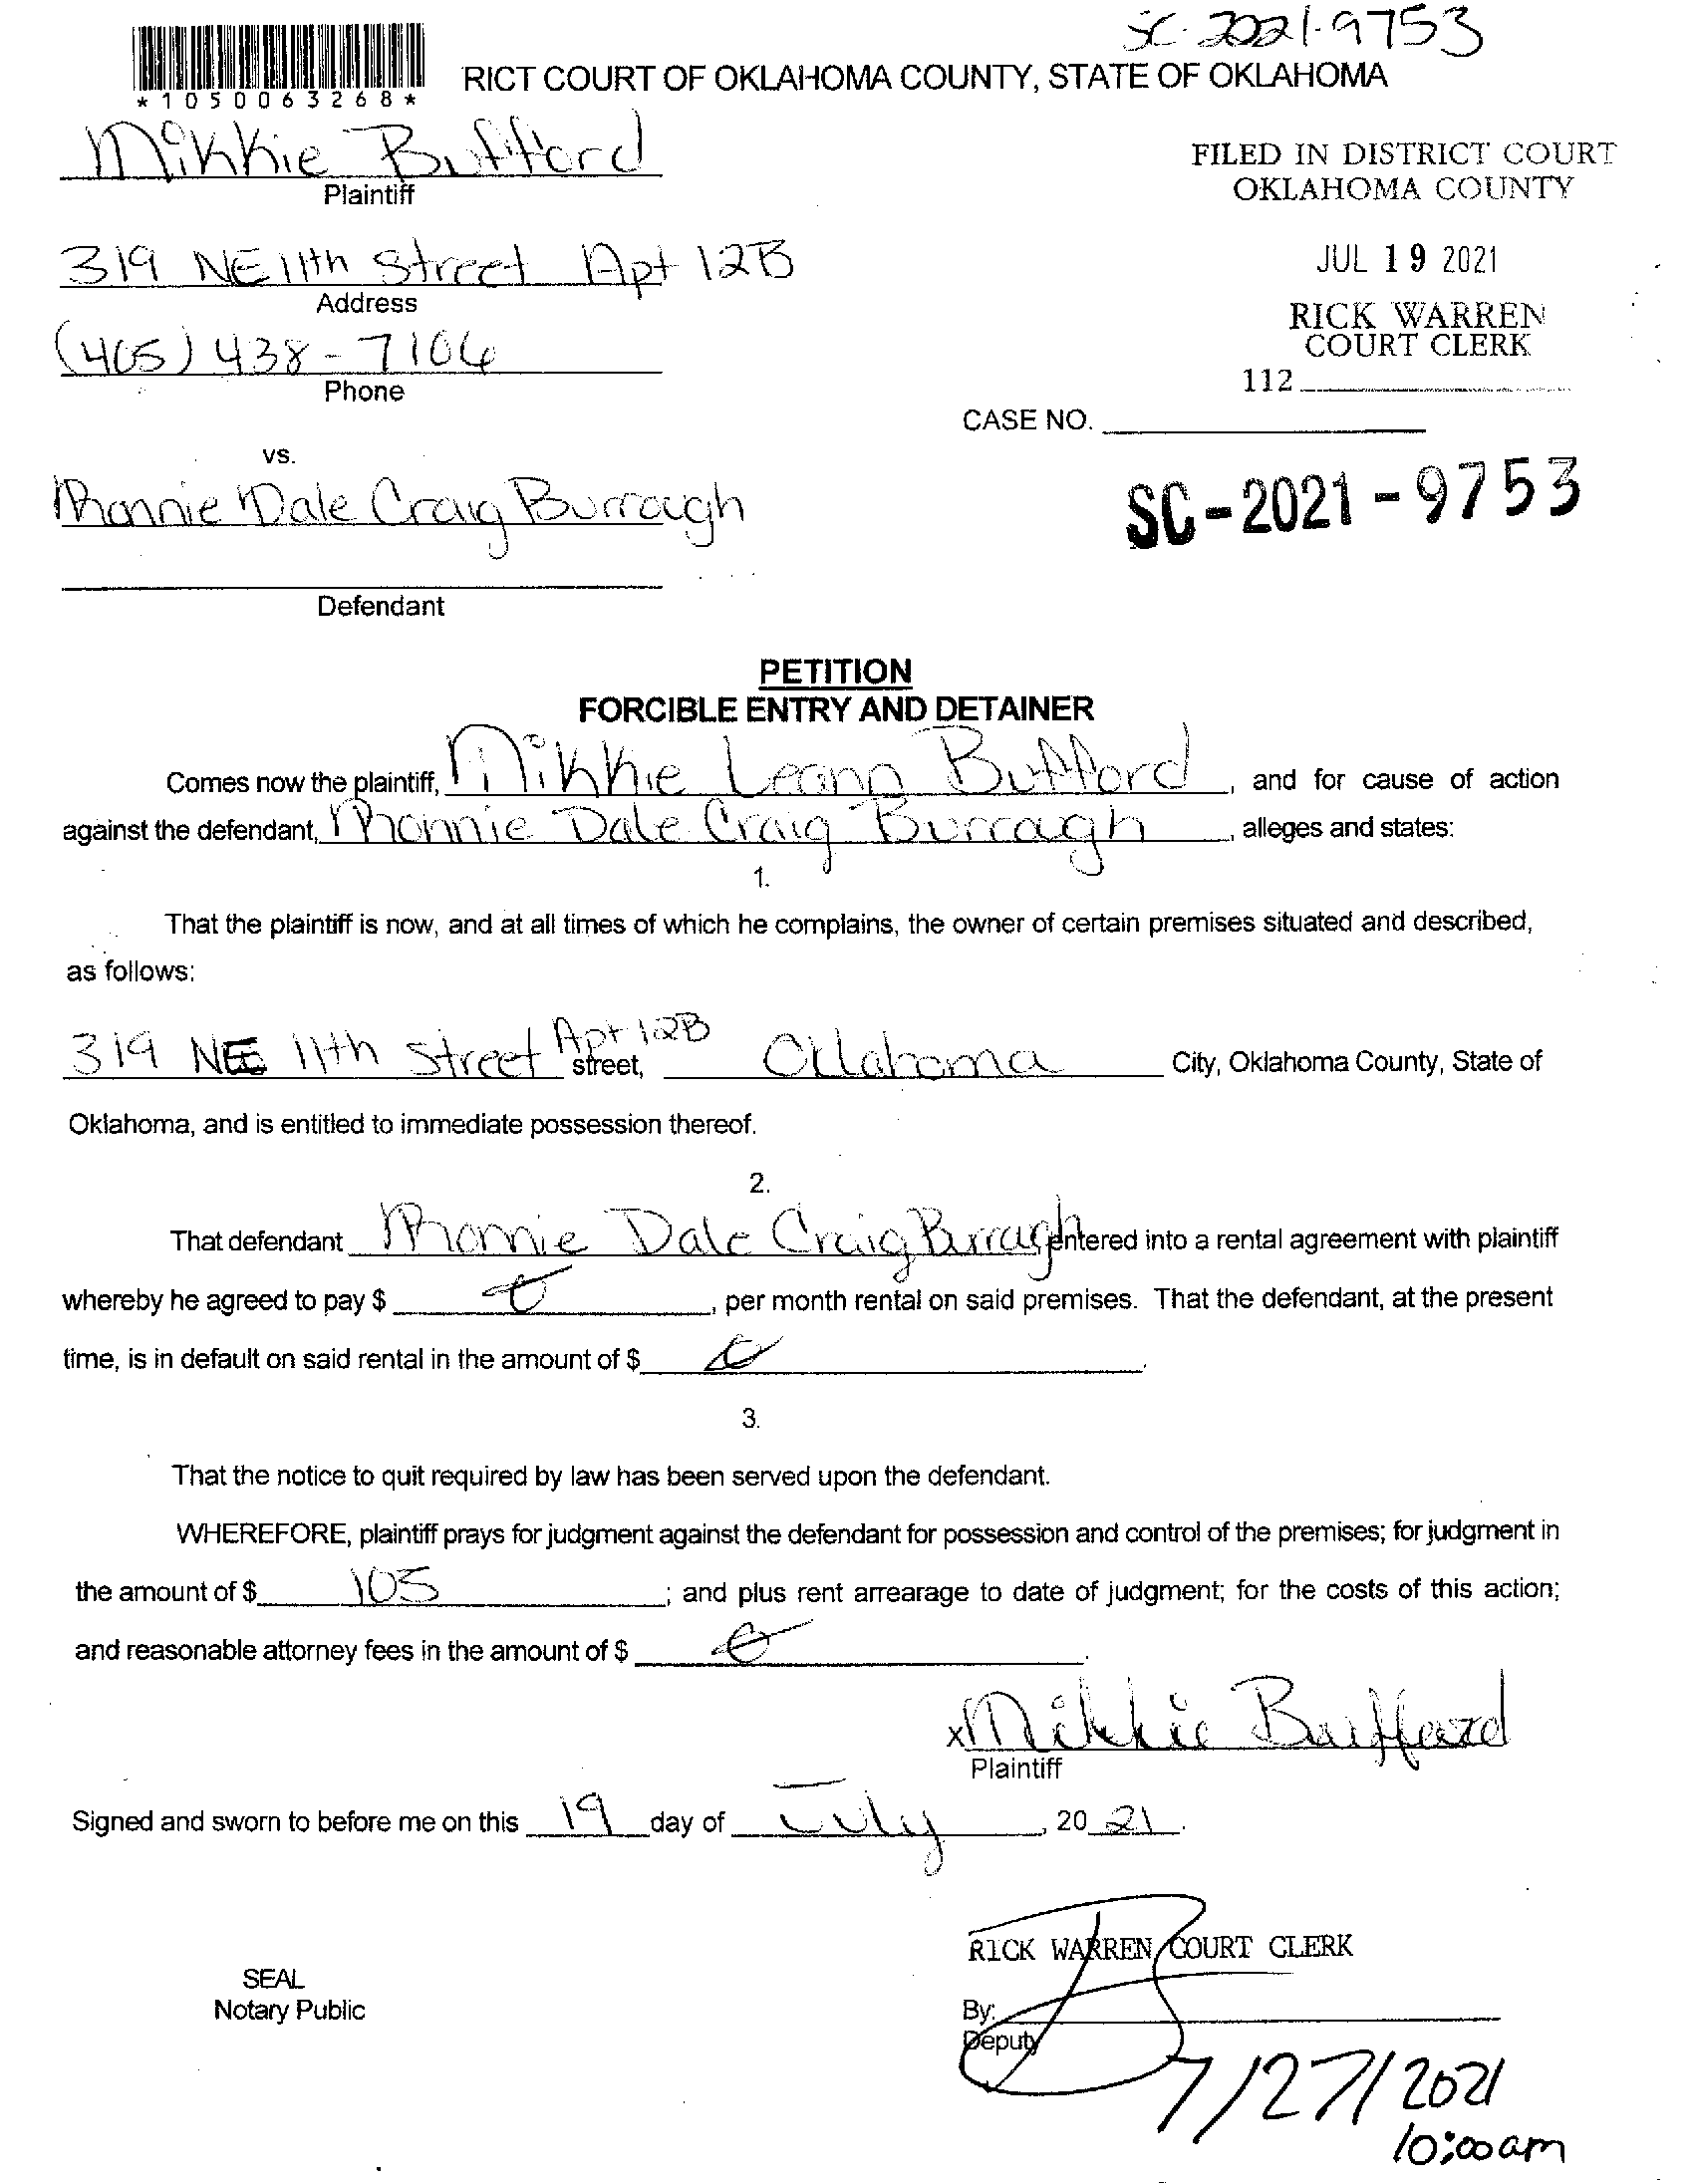 SC-2021-9753
*1050063268*
RICT COURT OF OKLAHOMA COUNTY, STATE OF OKLAHOMA
Mikkie Bufford
Plaintiff
FILED IN DISTRICT COURT
OKLAHOMA COUNTY
319 NE 11th Street Apt 12B
Address
JUL 19 2021
RICK WARREN
COURT CLERK
(405) 438-7106
Phone
112
CASE NO.
vs.
SC-2021-9753
Dale Craig Burrough
Defendant
PETITION
FORCIBLE ENTRY AND DETAINER
Comes now the plaintiff, Mikkie Leann Bufford, and for cause of action
against the defendant, Dale Craig Burrough, alleges and states:
1.
That the plaintiff is now, and at all times of which he complains, the owner of certain premises situated and described,
as follows:
319 NE 11th Street Apt 12B street, Oklahoma City, Oklahoma County, State of
Oklahoma, and is entitled to immediate possession thereof.
2.
That defendant Dale Craig Burrough entered into a rental agreement with plaintiff
whereby he agreed to pay $ , per month rental on said premises. That the defendant, at the present
time, is in default on said rental in the amount of $ .
3.
That the notice to quit required by law has been served upon the defendant.
WHEREFORE, plaintiff prays for judgment against the defendant for possession and control of the premises; for judgment in
the amount of $ 105; and plus rent arrearage to date of judgment; for the costs of this action;
and reasonable attorney fees in the amount of $ .
x Mikkie Bufford
Plaintiff
Signed and sworn to before me on this 19 day of July, 20 21.
RICK WARREN, COURT CLERK
SEAL
Notary Public
By:
Deputy
7/27/2021
10:00am